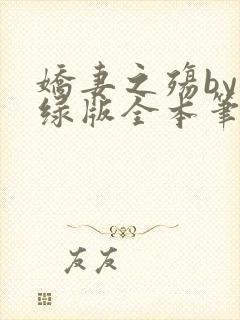 娇妻之殇by
绿版全本笔
友友